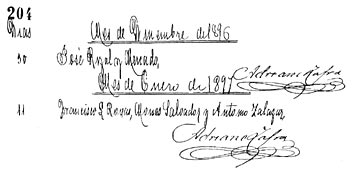 204
Dias Mes de Diciembre de 1896
30 José Rizal y Mercado,
Mes de Enero de 1897 Adriano Zafra
11 Francisco L Roxas, Moises Salvador y Antonio Salazar
Adriano Zafra